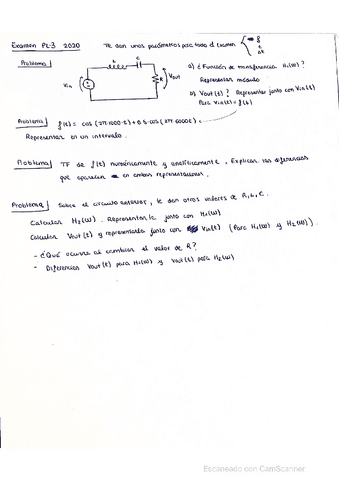 Examen PL-3 2020
Te dan unos parámetros para todo el examen
Problema
L C R Vin Vout
a) ¿Función de transferencia H₁(ω)?
Representar módulo.
b) Vout(t)? Representar junto con Vin(t)
Para Vin(t) = f(t)
Problema f(t) = cos(2π·1000·t) + 0.5·cos(2π·5000t)
Representar en un intervalo.
Problema TF de f(t) numéricamente y analíticamente. Explicar las diferencias
que aparecen en ambas representaciones.
Problema Sobre el circuito anterior, te dan otros valores de R, L, C.
Calcular H₂(ω). Representarla junto con H₁(ω)
Calcular Vout(t) y representarla junto con Vin(t) (Para H₁(ω) y H₂(ω)).
- ¿Qué ocurre al cambiar el valor de R?
- Diferencias Vout(t) para H₁(ω) y Vout(t) para H₂(ω)
Escaneado con CamScanner